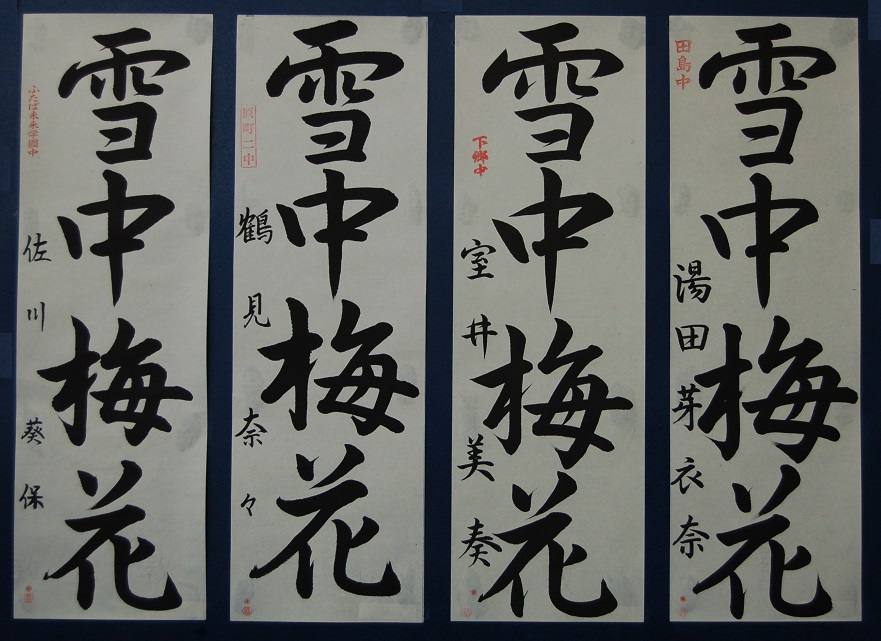 田島中
雪中梅花
湯田芽衣奈
下郷中
雪中梅花
室井美奏
原町二中
雪中梅花
鶴見奈々
ふたば未来学園中
雪中梅花
佐川葵保